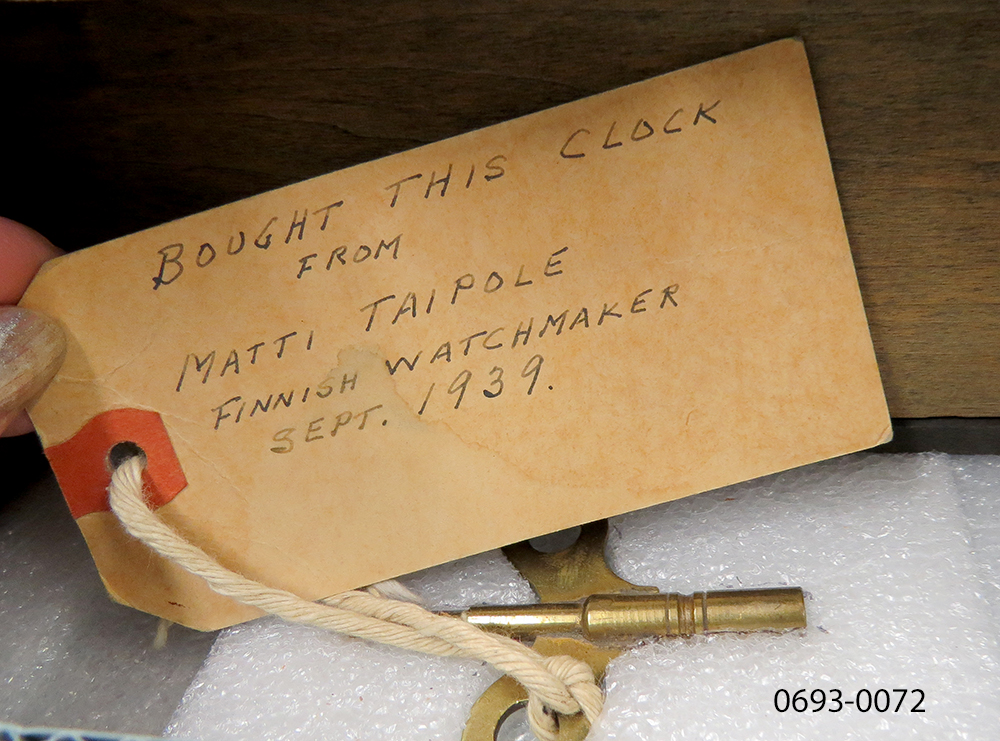 BOUGHT THIS CLOCK
FROM
MATTI TAIPOLE
FINNISH WATCHMAKER
SEPT. 1939.
0693-0072